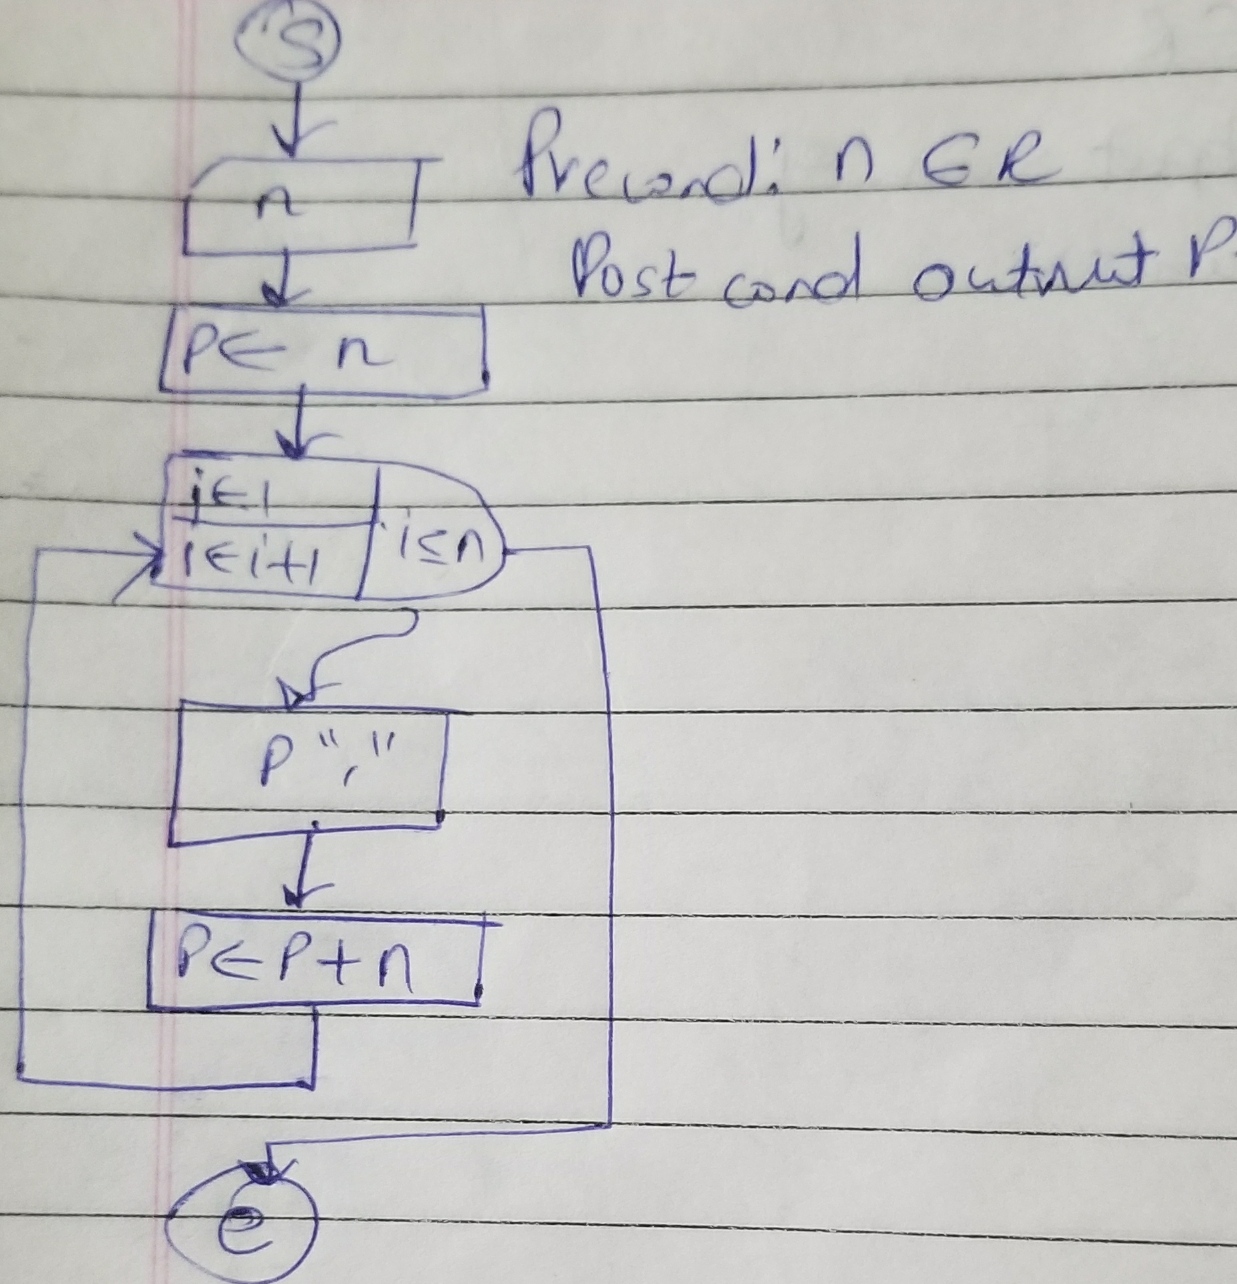 S
Precond: n ∈ R
n
Post cond output P
P ← n
i ← 1
i ← i+1
i ≤ n
P ","
P ← P + n
e